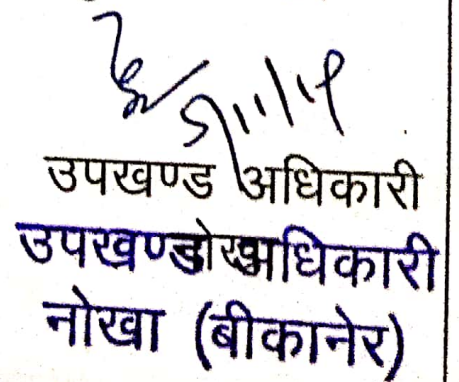 उपखण्ड अधिकारी
उपखण्ड अधिकारी
नोखा (बीकानेर)